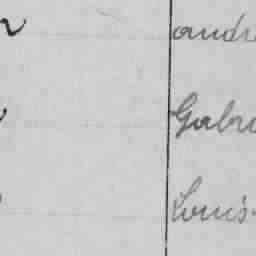 andr
Gabri
Louis